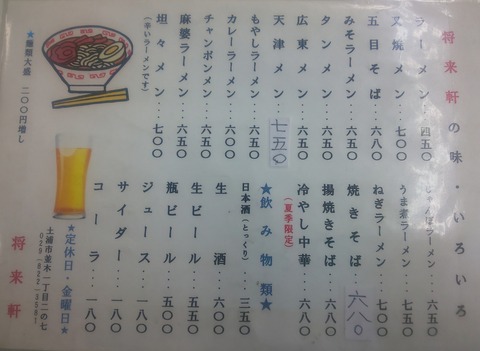 将来軒の味・いろいろ
ラーメン・・・四五〇
叉焼メン・・・七〇〇
五目そば・・・六八〇
みそラーメン・・・六五〇
タンメン・・・六五〇
広東メン・・・六五〇
天津メン・・・七五〇
もやしラーメン・・・六五〇
カレーラーメン・・・六〇〇
チャンポンメン・・・六五〇
麻婆ラーメン・・・六五〇
坦々メン・・・七〇〇
(辛いラーメンです)
★麺類大盛 二〇〇円増し
じゃんぼラーメン・・・六五〇
うま煮ラーメン・・・七五〇
ねぎラーメン・・・七〇〇
焼きそば 六八〇
揚焼きそば・・・六八〇
冷やし中華・・・六八〇
(夏季限定)
★飲み物類★
日本酒(とっくり)・・・三五〇
生酒・・・六〇〇
生ビール・・・五五〇
瓶ビール・・・五〇〇
ジュース・・・一八〇
サイダー・・・一八〇
コーラ・・・一八〇
★定休日・金曜日★
土浦市並木一丁目二の七
029・822・3581
将来軒